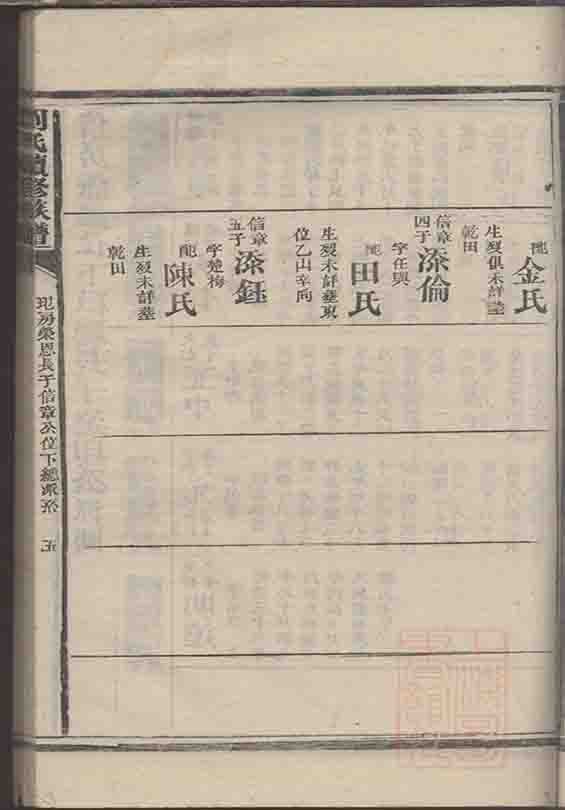 配
金氏
生殁俱未詳塟
乾田
信章
四子
添倫
字任興
配
田氏
生殁未詳塟東
位乙山辛向
信章
五子
添鈺
字楚梅
配
陳氏
生殁未詳塟
乾田
氏續修族譜
房榮恩長子信章公位下總派系
五